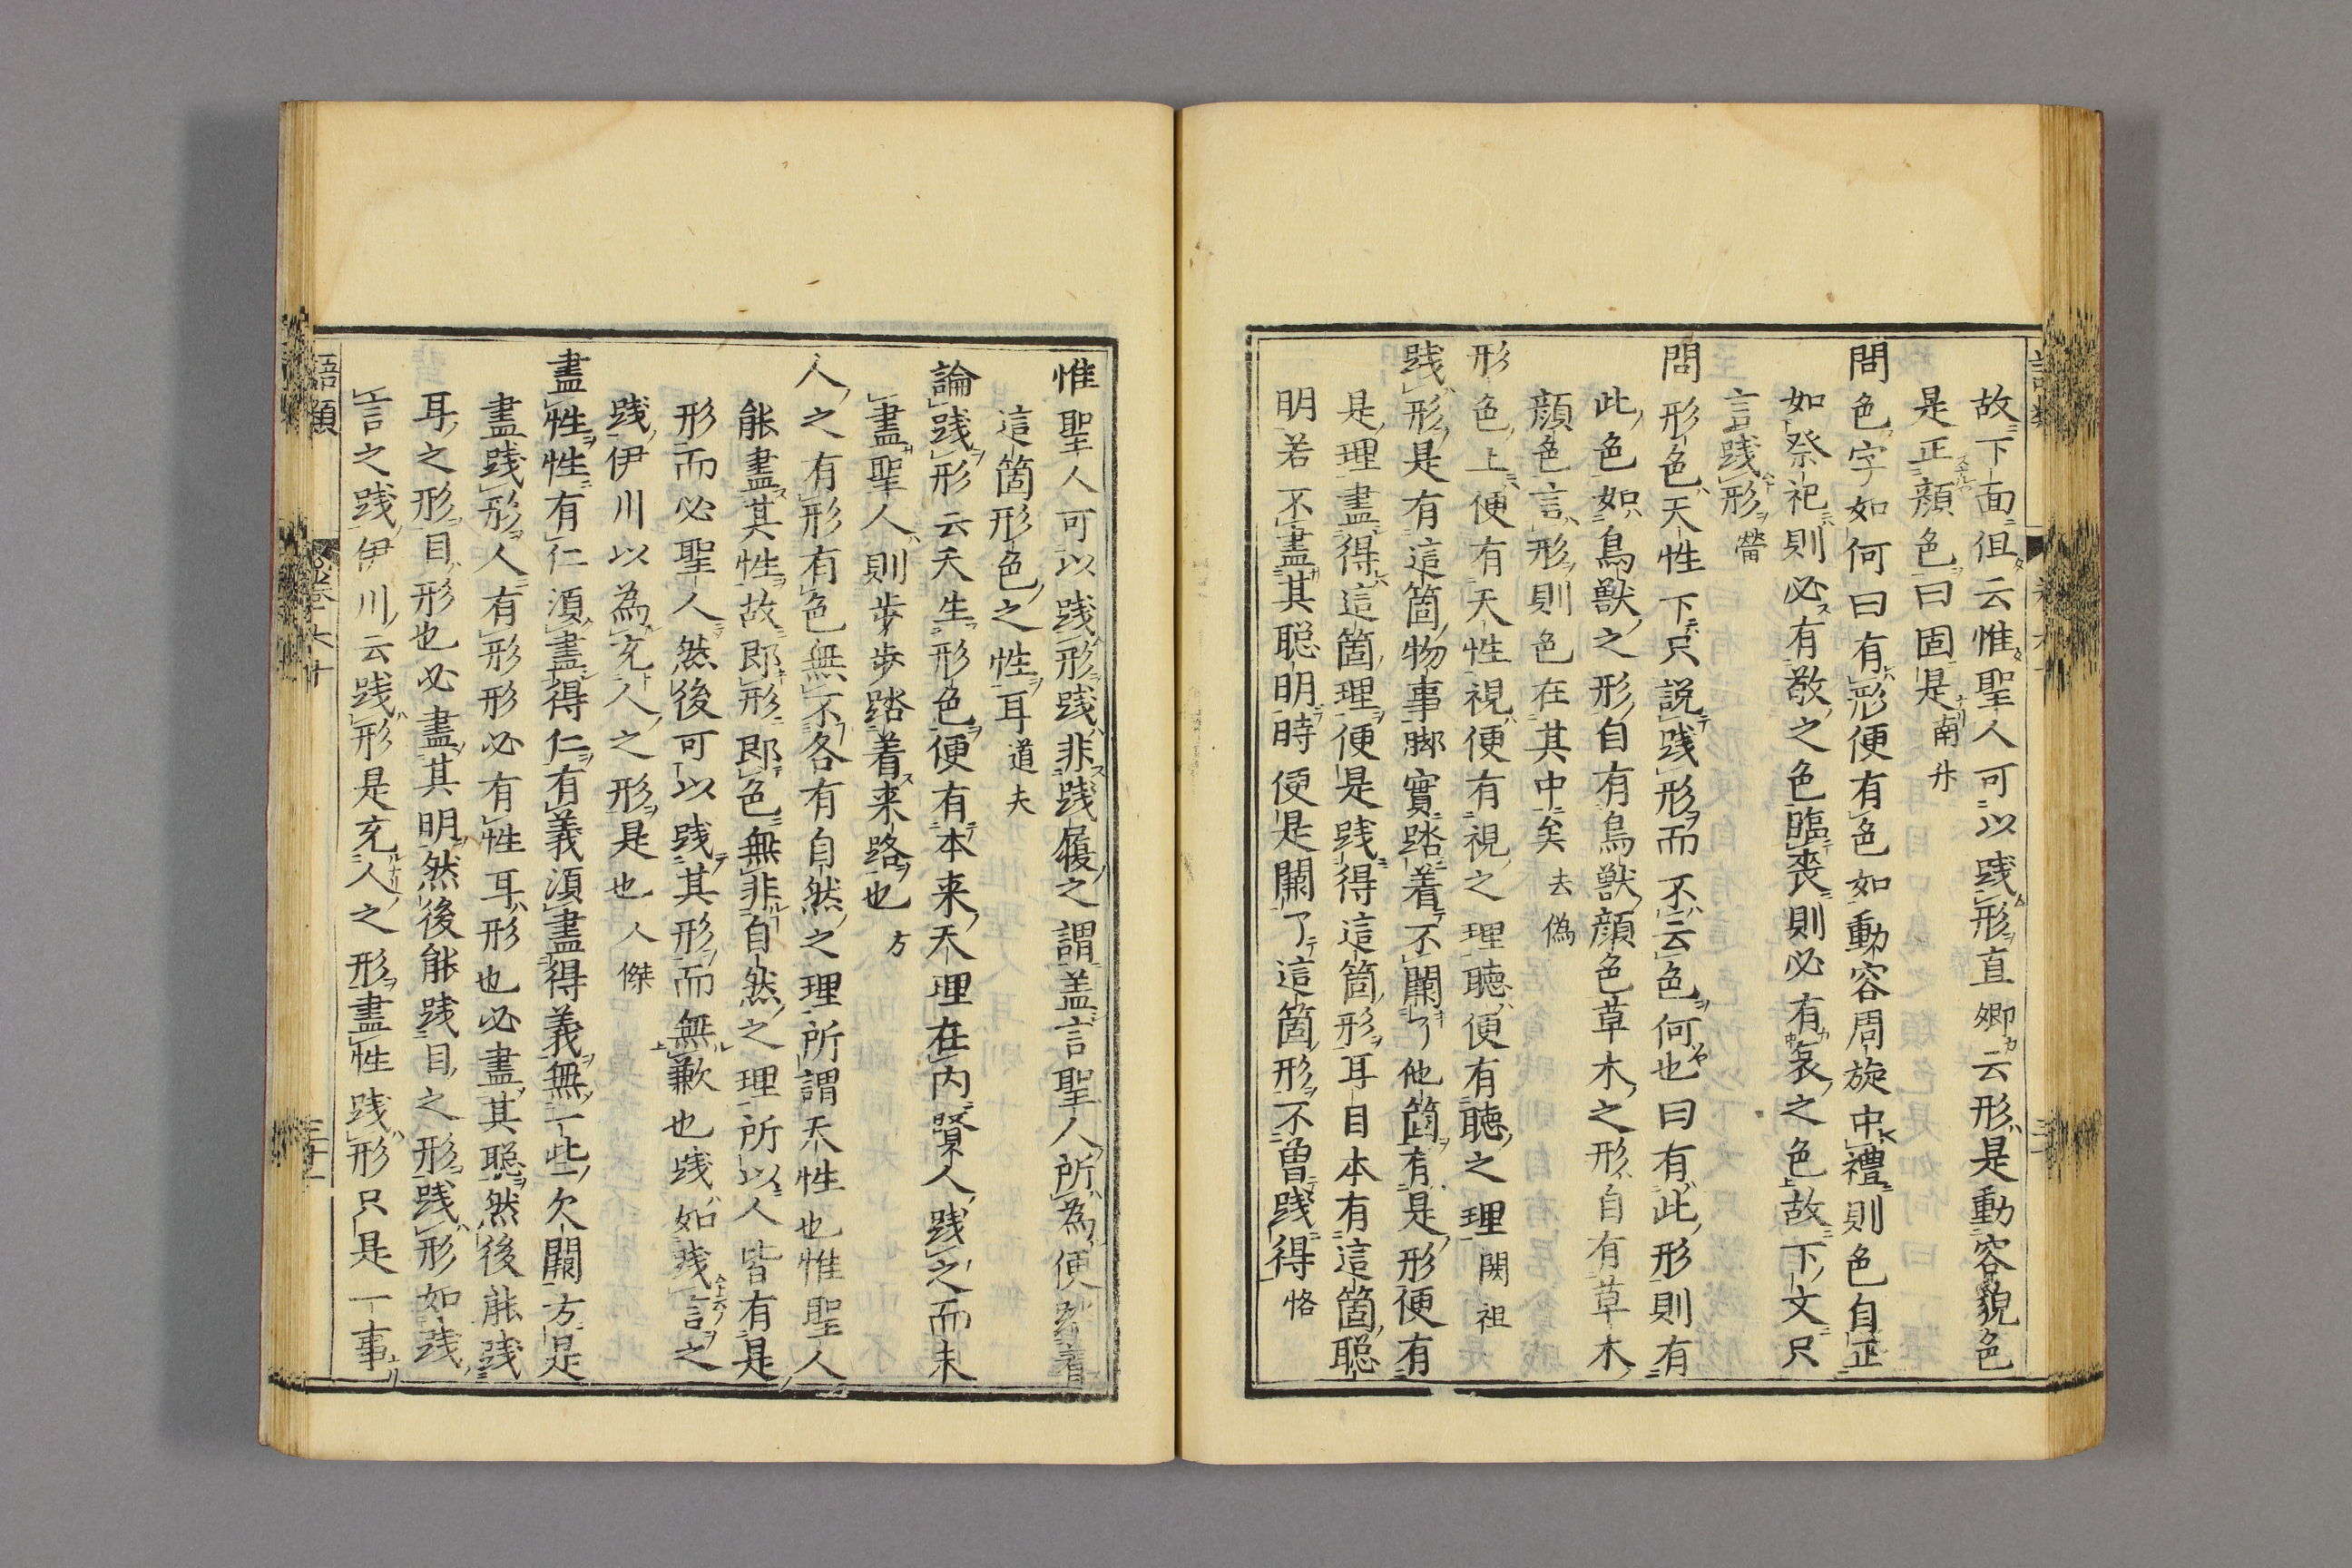 故下面但云惟聖人可以践形直卿云形是動容貌色
是正顔色曰固是南升
問色字如何曰有形便有色如動容周旋中禮則色自正
如祭祀則必有敬之色臨喪則必有哀之色故下文只
言践形㽦
問形色天性下只説践形而不云色何也曰有此形則有
此色如鳥獸之形自有鳥獸顔色草木之形自有草木
顔色言形則色在其中矣去偽
形色上便有天性視便有視之理聴便有聴之理閎祖
践形是有這箇物事脚實踏着不闕了他箇有是形便有
是理盡得這箇理便是践得這箇形耳目本有這箇聡
明若不盡其聡明時便是闕了這箇形不曽践得恪
惟聖人可以践形践非践履之謂盖言聖人所為便踏着
這箇形色之性耳道夫
論践形云天生形色便有本来天理在内賢人践之而未
盡聖人則歩歩踏着来路也方
人之有形有色無不各有自然之理所謂天性也惟聖人
能盡其性故即形即色無非自然之理所以人皆有是
形而必聖人然後可以践其形而無歉也践如践言之
践伊川以為充人之形是也人傑
盡性性有仁須盡得仁有義須盡得義無一些欠闕方是
盡践形人有形形必有性耳形也必盡其聡然後能践
耳之形目形也必盡其明然後能践目之形践形如践
言之践伊川云践形是充人之形盡性践形只是一事
語類